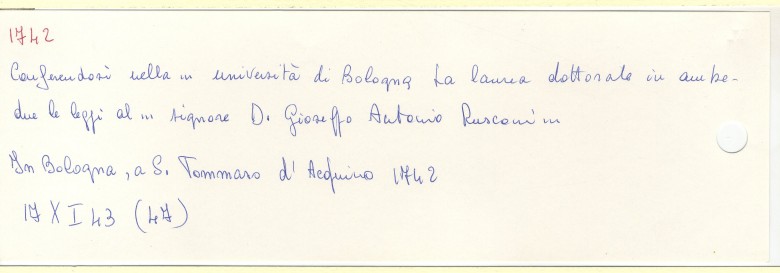 1742
Conferendosi nella ... università di Bologna la laurea dottorale in ambe-
due le leggi al ... signore D. Gioseffo Antonio Rusconi ...
In Bologna, a S. Tommaso d'Acquino 1742
17 X I 43 (47)